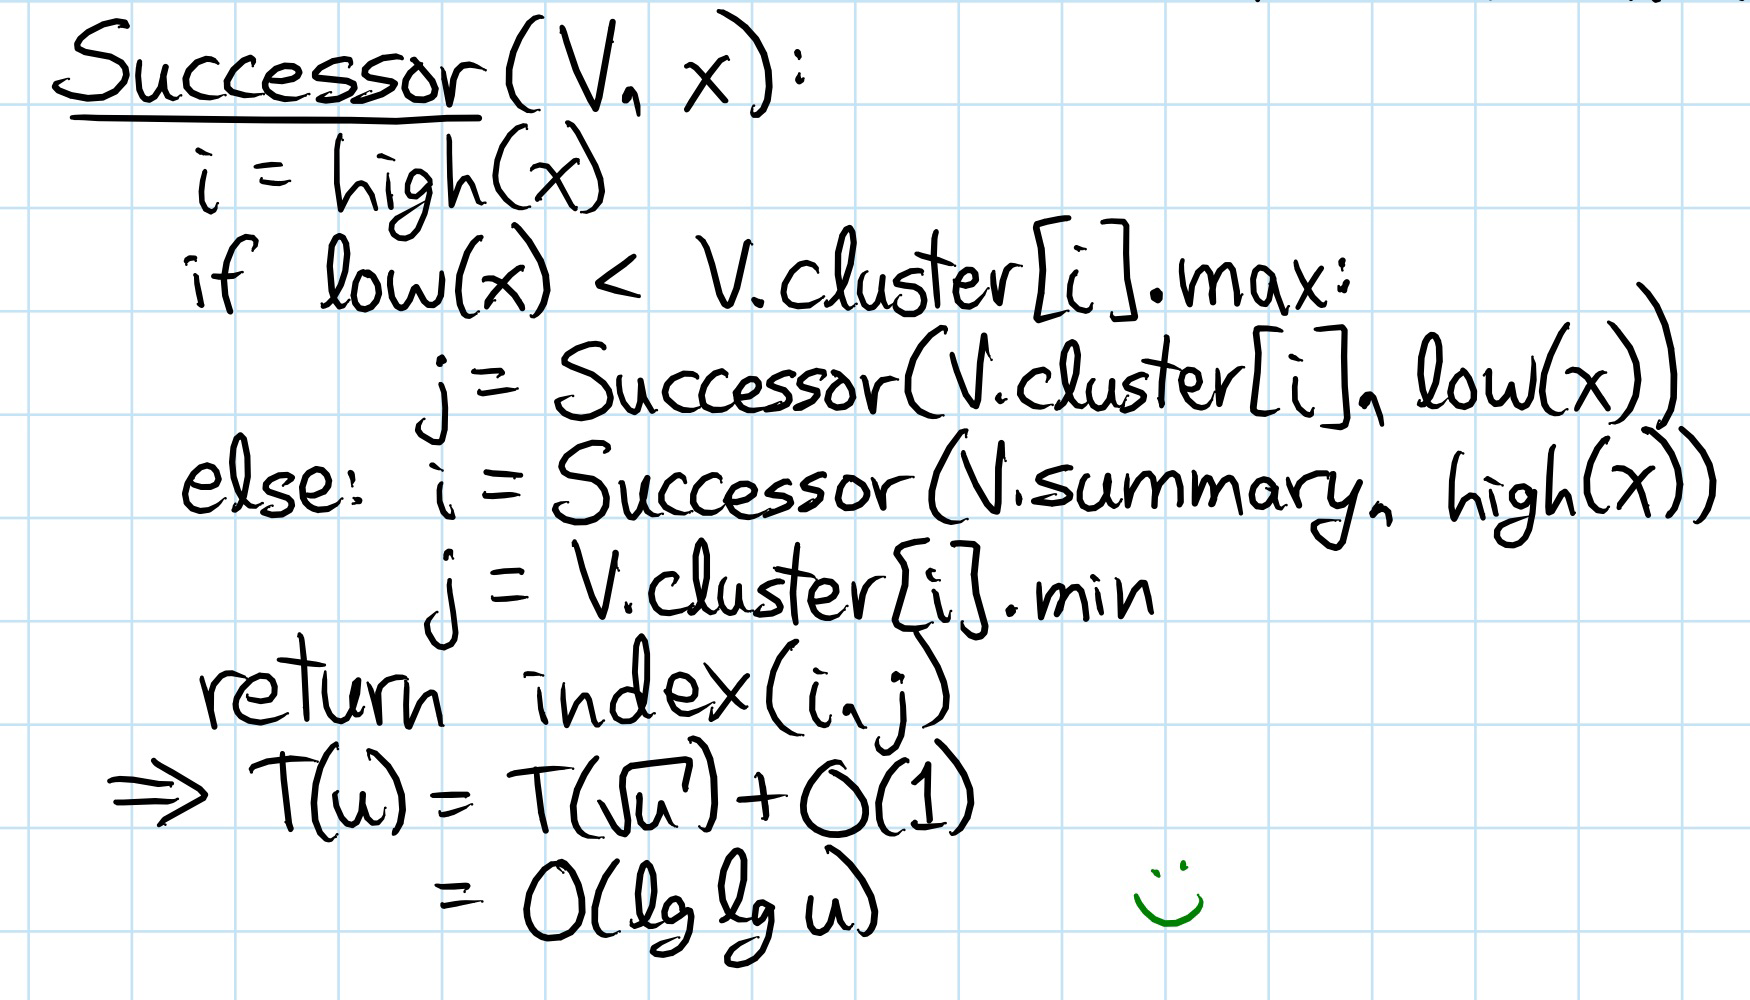 Successor(V, x):
i = high(x)
if low(x) < V.cluster[i].max:
j = Successor(V.cluster[i], low(x))
else: i = Successor(V.summary, high(x))
j = V.cluster[i].min
return index(i, j)
⇒ T(u) = T(√u) + O(1)
= O(lg lg u)